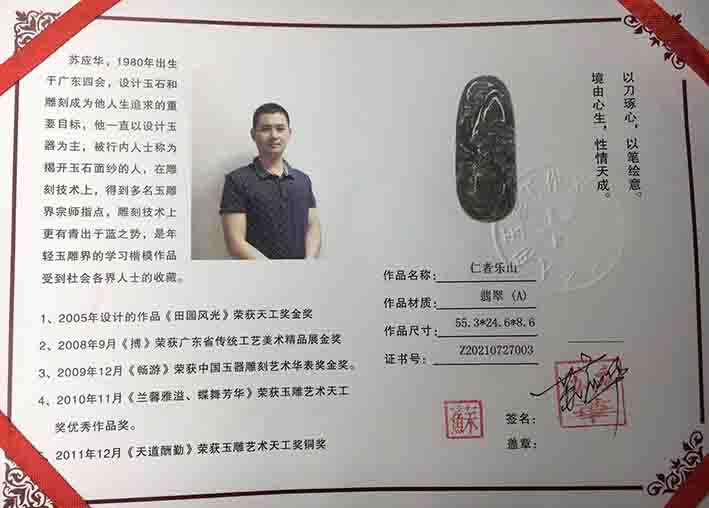 苏应华，1980年出生
于广东四会，设计玉石和
雕刻成为他人生追求的重
要目标，他一直以设计玉
器为主，被行内人士称为
揭开玉石面纱的人，在雕
刻技术上，得到多名玉雕
界宗师指点，雕刻技术上
更有青出于蓝之势，是年
轻玉雕界的学习楷模作品
受到社会各界人士的收藏。
1、2005年设计的作品《田园风光》荣获天工奖金奖
2、2008年9月《搏》荣获广东省传统工艺美术精品展金奖
3、2009年12月《畅游》荣获中国玉器雕刻艺术华表奖金奖。
4、2010年11月《兰馨雅溢、蝶舞芳华》荣获玉雕艺术天工
奖优秀作品奖。
、2011年12月《天道酬勤》荣获玉雕艺术天工奖铜奖
以刀琢心，以笔绘意。
境由心生，性情天成。
作品名称：仁者乐山
作品材质：翡翠 (A)
作品尺寸：55.3*24.6*8.6
证书号：Z20210727003
签名：
盖章：